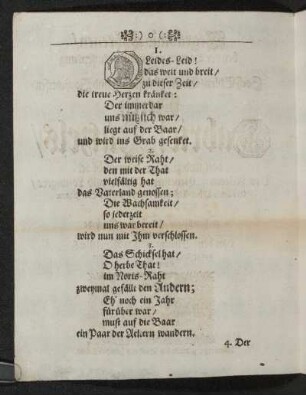 :) o (:
1.
O Leides-Leid!
das weit und breit/
zu dieser Zeit/
die treue Herzen kränket:
Der immerdar
uns nützlich war/
liegt auf der Baar/
und wird ins Grab gesenket.
2.
Der weise Raht/
den mit der That
vielfältig hat
das Vaterland genossen;
Die Wachsamkeit/
so jederzeit
uns war bereit/
wird nun mit Ihm verschlossen.
3.
Das Schicksel hat/
O herbe That!
im Noris-Raht
zweymal gefällt den Andern;
Eh' noch ein Jahr
fürüber war/
must auf die Baar
ein Paar der Aeltern wandern.
4. Der